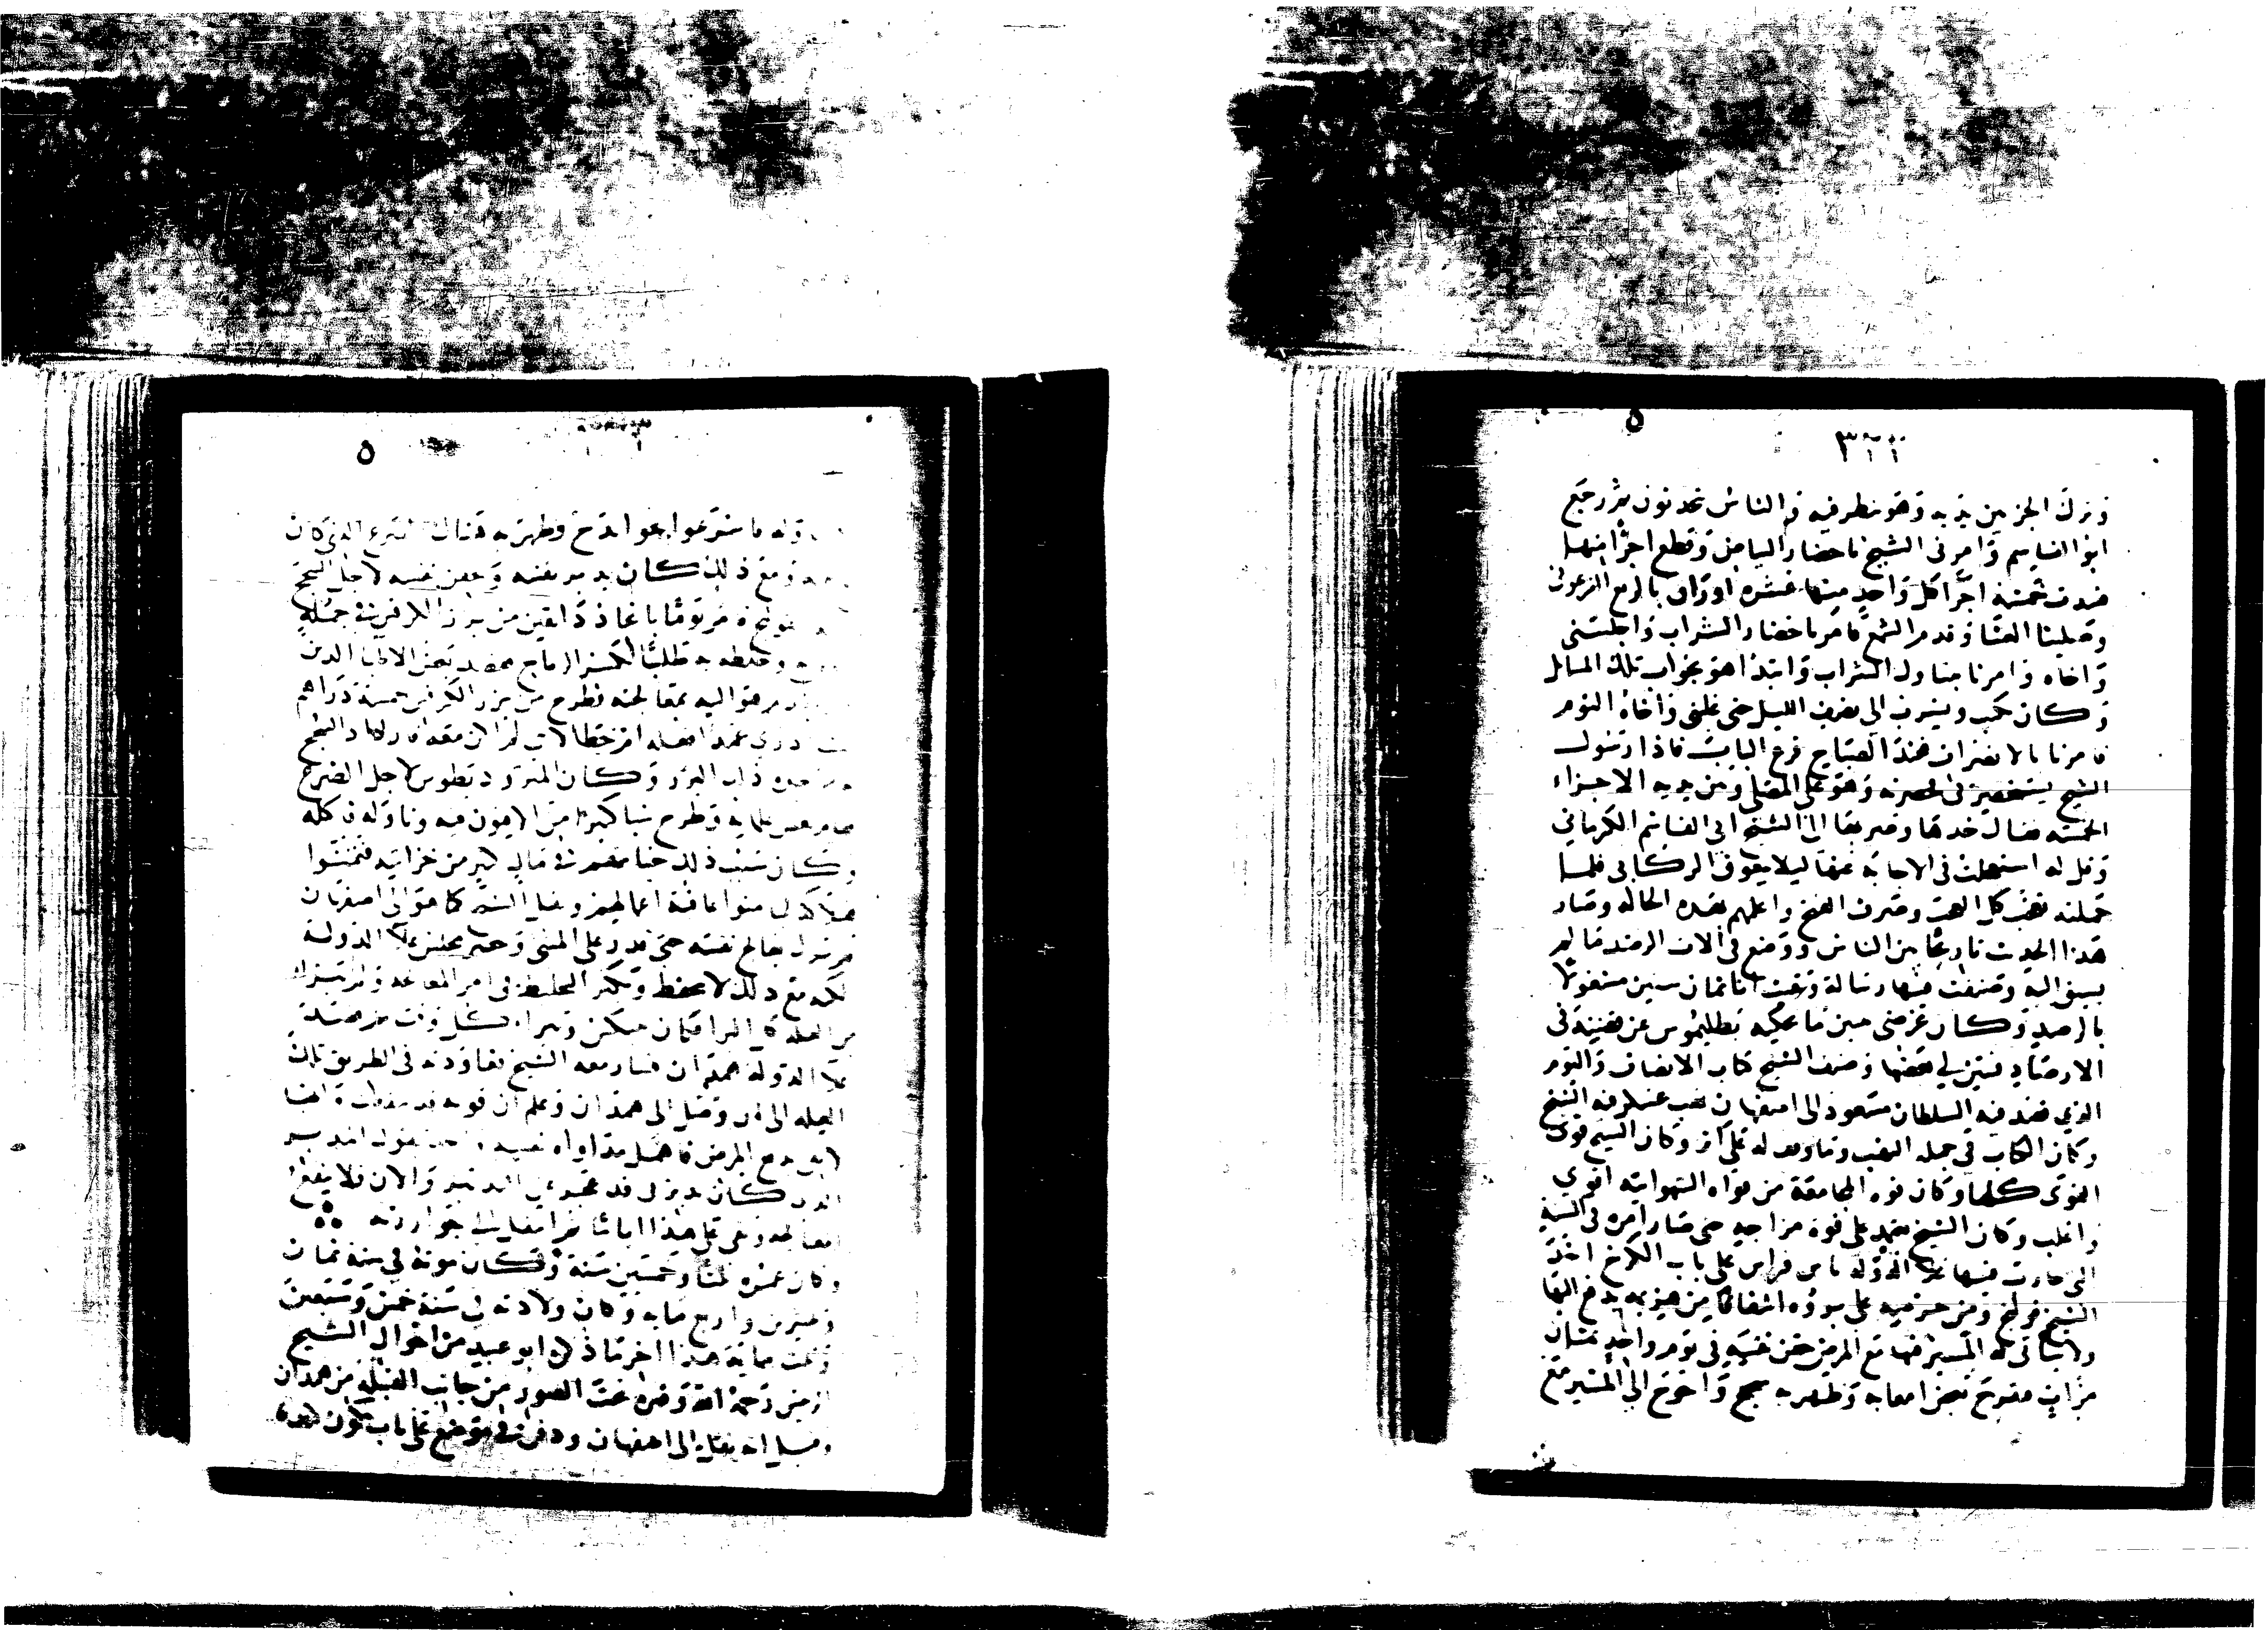 وترك الجز بين يديه وهو ينظر فيه والناس يتحدثون ثم رجع
ابو القاسم وامرني الشيخ باحضار البياض وقطع اجزا منها
فشددت خمسة اجزا كل واحد منها عشره اوراق بالربع الفرعوني
وصلينا العشا وقدم الشمع فامر باحضار الشراب واجلسني
واخاه وامرنا بتناول الشراب وابتدا هو بجواب تلك المسائل
وكان يكتب ويشرب الي نصف الليل حتى غلبني واخاه النوم
فامرنا بالانصراف فعند الصباح قرع الباب فاذا رسول
الشيخ يستحضرني فحضرته وهو على المصلى وبين يديه الاجزاء
الخمسه فقال خدها وصر بها الى الشيخ ابي القاسم الكرماني
وقل له استعجلت في الاجابة عنها ليلا يتعوق الركابي فلما
حملته تعجب كل العجب وصرف الفيج واعلمهم بهذه الحاله وصار
هذا الحديث تاريخا بين الناس ووضع في آلات الرصد ما لم
يسبق اليه وصنفت فيها رسالة وبقيت انا ثمان سنين مشغولا
بالرصد وكان غرضي تبين ما يحكيه بطليموس عن قضيته في
الارصاد فتبين لي بعضها وصنف الشيخ كتاب الانصاف واليوم
الذي قدم فيه السلطان مسعود الى اصفهان نهب عسكره رحل الشيخ
وكان الكتاب في جمله النهب وما وقف له على اثر وكان الشيخ قوي
القوى كلها وكان قوه المجامعة من قواه الشهوانيه اقوي
واغلب وكان الشيخ يعتمد على قوة مزاجه حتى صار امره في السنة
التي حارب فيها علا الدوله تاش فراش على باب الكرخ اخذ
الشيخ قولنج ومن حرصه على بروه اشفاقا من هزيمه يدفع اليها
ولا يتاتى له المسير فيها مع المرض حقن نفسه في يوم واحد ثمان
مرات فتقرح بعض امعايه وظهر به سحج واحوج الى المسير مع
الدوله فاسرعوا نحو ايذج وظهر به هناك الصرع الذي كان
ومع ذلك كان يدبر نفسه ويحقن نفسه لاجل السحج
فامر يوما باتخاذ دانقين من بزر الكرفس في جملة
وخلطه به طلبا لكسر الرياح فقصد بعض الاطبا الذين
يتقدم هو اليه بمعالجته فطرح من بزر الكرفس خمسة دراهم
ادري عمدا فعله ام خطا لانني لم اكن معه فازداد السحج
من حدة ذلك البزر وكان المثرود يطوس لاجل الصرع
فقام بعض غلمانه وطرح شيا كثيرا من الافيون فيه وناوله فاكله
وكان سبب ذلك خيانتهم في مال كثير من خزانته فتمنوا
هلاكه ليامنوا عاقبة اعمالهم ونقل الشيخ كما هو الى اصفهان
فاشتغل يعالج نفسه حتى قدر على المشي وحضر مجلس علا الدولة
لكنه مع ذلك لا يتحفظ ويكثر التخليط في امر المجامعة ولم يبرا
من العلة كل البرا فكان ينتكس ويبرا كل وقت ثم قصد
علا الدولة همدان فسار معه الشيخ فعاودته في الطريق تلك
العله الى ان وصل الى همدان وعلم ان قوته قد سقطت وانها
لا تفي بدفع المرض فاهمل مداواة نفسه واخذ يقول المدبر
الذي كان يدبرني قد عجز عن التدبير والان فلا ينفع
المعالجه وبقي على هذا اياما ثم انتقل الى جوار ربه
وكان عمره ثلثا وخمسين سنة وكان موته في سنة ثمان
وعشرين واربع مايه وكان ولادته في سنة خمس وسبعين
وثلث مايه هذا اخر ما ذكره ابو عبيد من احوال الشيخ
الرئيس رحمه الله وقبره تحت السور من جانب القبلة من همدان
وقيل انه نقل الى اصفهان ودفن في موضع على باب كون كنبد